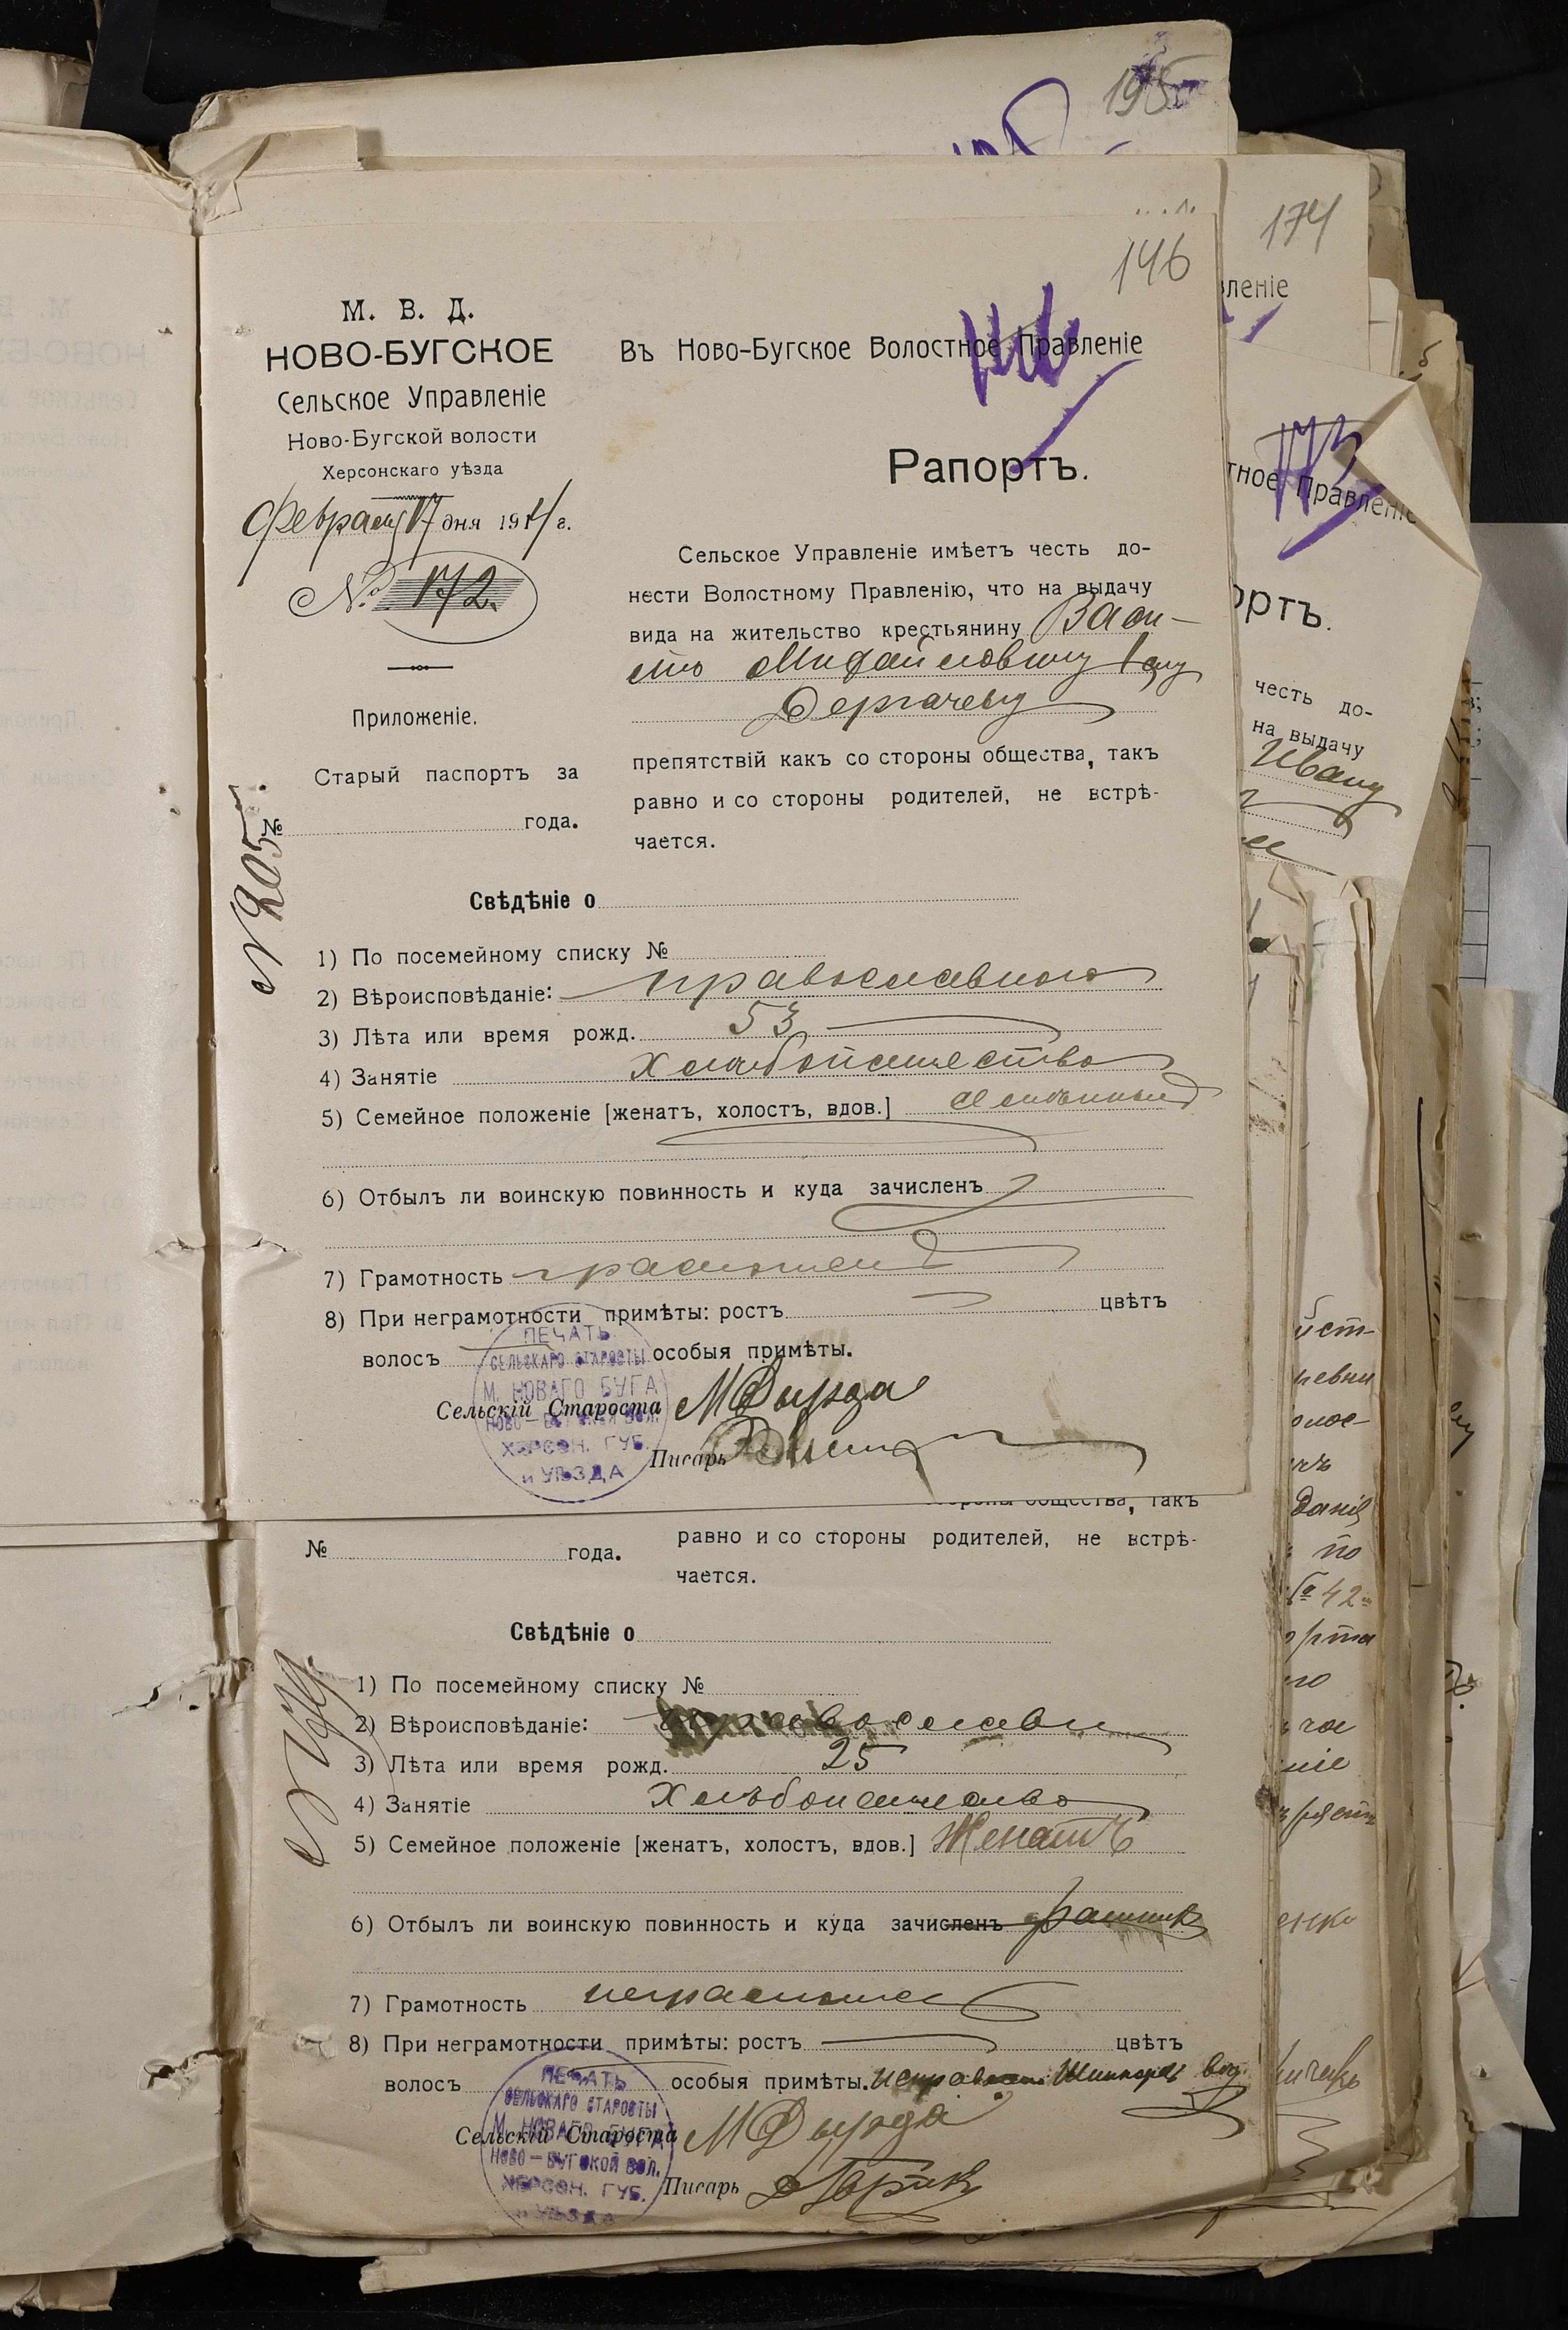 195
174
146
М. В. Д.
НОВО-БУГСКОЕ
Сельское Управленіе
Ново-Бугской волости
Херсонскаго уѣзда
февраля 17 дня 1914 г.
№ 172
Приложеніе.
Старый паспортъ за
№ года.
№ 205
Въ Ново-Бугское Волостное Правленіе
146
Рапортъ.
Сельское Управленіе имѣетъ честь до-
нести Волостному Правленію, что на выдачу
вида на жительство крестьянину Васи-
лію Михайловичу 1му
Дергачеву
препятствій какъ со стороны общества, такъ
равно и со стороны родителей, не встрѣ-
чается.
Свѣдѣніе о
1) По посемейному списку №
2) Вѣроисповѣданіе: православнаго
3) Лѣта или время рожд. 53
4) Занятіе Хлѣбопашество
5) Семейное положеніе [женатъ, холостъ, вдов.]
6) Отбылъ ли воинскую повинность и куда зачисленъ
7) Грамотность грамотенъ
8) При неграмотности примѣты: ростъ цвѣтъ
волосъ особыя примѣты.
Сельскій Староста М Дырда
Писарь
ПЕЧАТЬ
СЕЛЬСКАГО СТАРОСТЫ
М. НОВАГО БУГА
НОВО-БУГСКОЙ ВОЛ.
ХЕРСОН. ГУБ.
и УѢЗДА
вленіе
173
тное Правленіе
ортъ.
честь до-
на выдачу
Ивану
стороны общества, такъ
равно и со стороны родителей, не встрѣ-
чается.
№ года.
Свѣдѣніе о
1) По посемейному списку №
2) Вѣроисповѣданіе: православн
3) Лѣта или время рожд. 25
4) Занятіе Хлѣбопашество
5) Семейное положеніе [женатъ, холостъ, вдов.] Женатъ
6) Отбылъ ли воинскую повинность и куда зачисленъ
7) Грамотность неграмотенъ
8) При неграмотности примѣты: ростъ цвѣтъ
волосъ особыя примѣты.
Сельскій Староста М Дырда
Писарь
ПЕЧАТЬ
СЕЛЬСКАГО СТАРОСТЫ
М. НОВАГО БУГА
НОВО-БУГСКОЙ ВОЛ.
ХЕРСОН. ГУБ.
и УѢЗДА
по